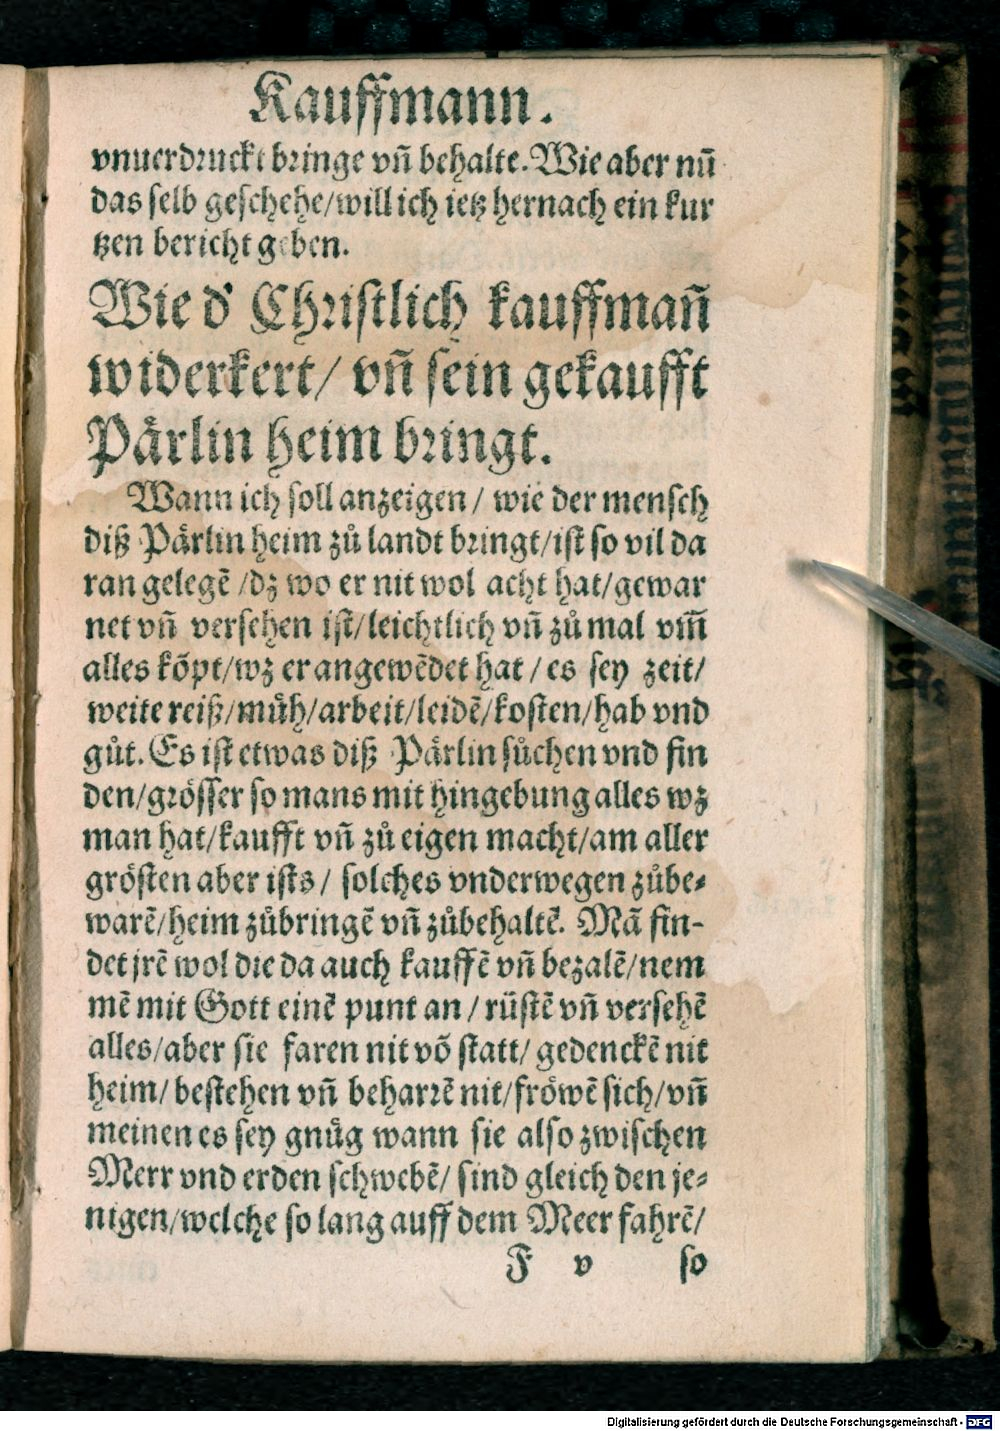 Kauffmann.
vnuerdruckt bringe vñ behalte. Wie aber nũ
das selb geschehe/will ich ietz hernach ein kur
tzen bericht geben.
Wie d' Christlich kauffmañ
widerkert/ vñ sein gekaufft
Pårlin heim bringt.
Wann ich soll anzeigen/ wie der mensch
diß Pårlin heim zů landt bringt/ist so vil da
ran gelegẽ /dz wo er nit wol acht hat/gewar
net vñ versehen ist/leichtlich vñ zů mal vm̃
alles kõpt/wz er angewẽdet hat/es sey zeit/
weite reiß/můh/arbeit/leidẽ/kosten/hab vnd
gůt. Es ist etwas diß Pårlin sůchen vnd fin
den/grősser so mans mit hingebung alles wz
man hat/kaufft vñ zů eigen macht/am aller
grősten aber ists/ solches vnderwegen zůbe-
warẽ/heim zůbringẽ vñ zůbehaltẽ. Mã fin-
det jrẽ wol die da auch kauffẽ vñ bezalẽ/nem
mẽ mit Gott einẽ punt an/rüstẽ vñ versehẽ
alles/aber sie faren nit võ statt/gedenckẽ nit
heim/bestehen vñ beharrẽ nit/frőwẽ sich/vñ
meinen es sey gnůg wann sie also zwischen
Merr vnd erden schwebẽ/ sind gleich den je-
nigen/welche so lang auff dem Meer fahrẽ/
F v so
Digitalisierung gefördert durch die Deutsche Forschungsgemeinschaft - DFG